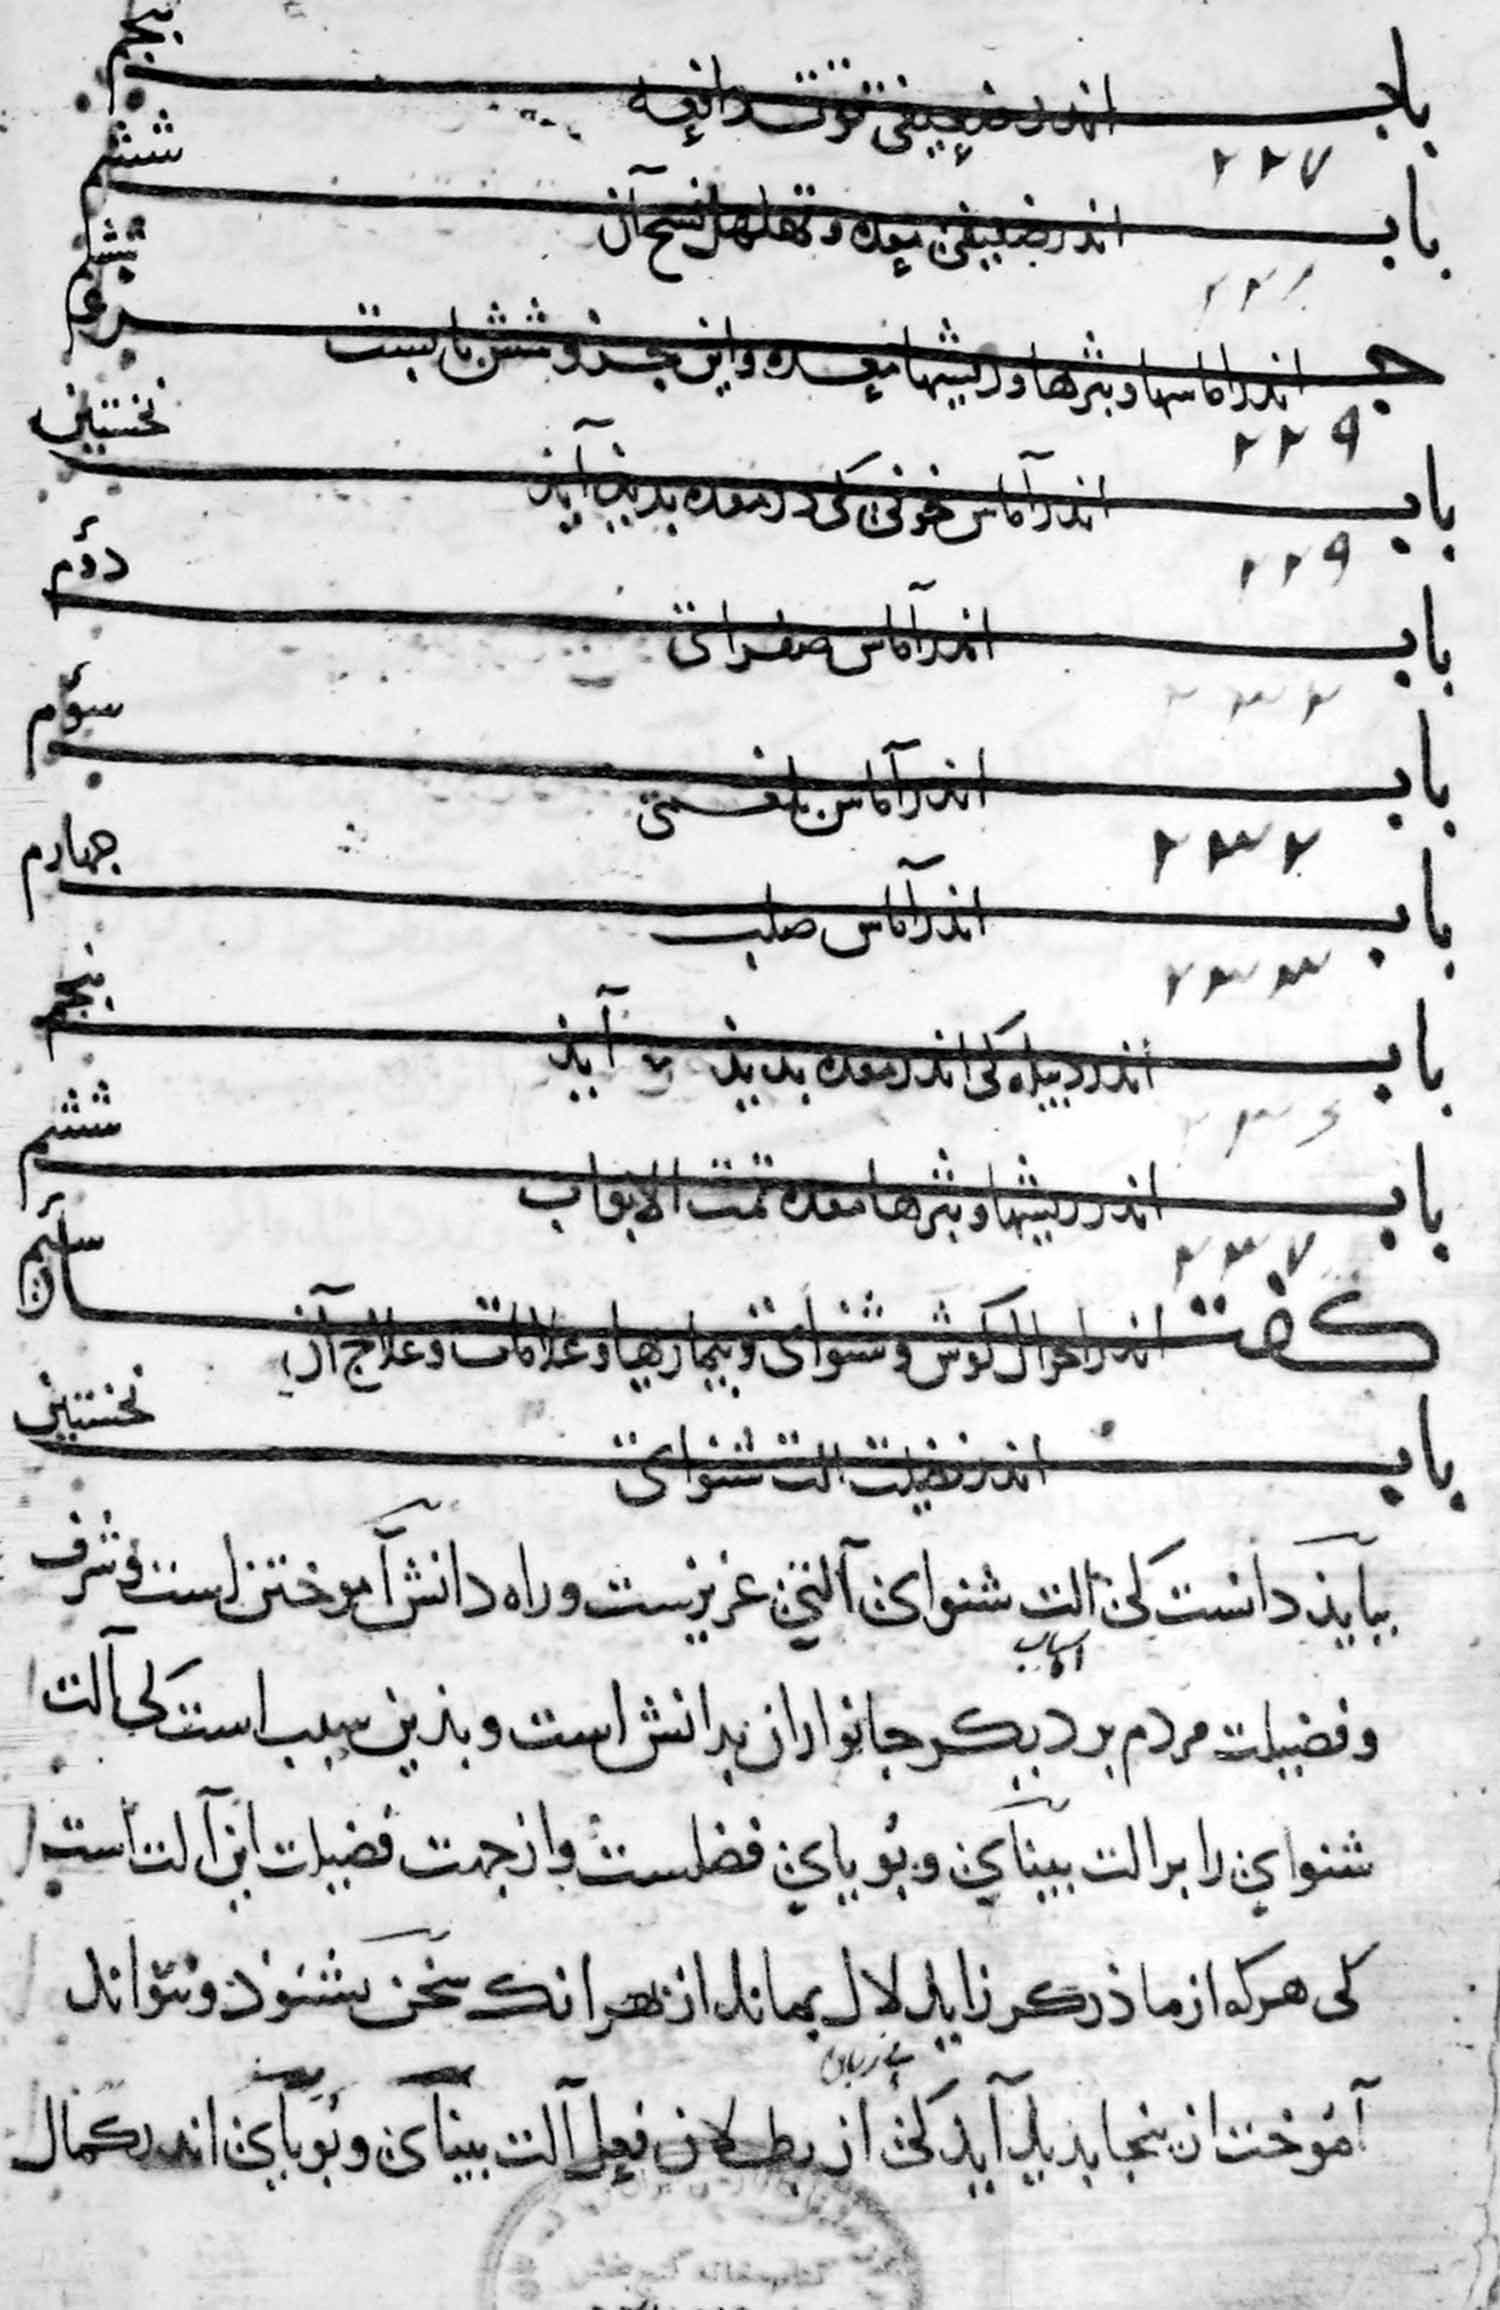 باب پنجم
اندر ضعیفی قوت دافعه
۲۲۷
باب ششم
اندر ضعیفی معده و نسج آن
جزو ششم
اندر اماسها و بثرها و ریشها معده و این جزو شش بابست
۲۲۹
باب نخستین
اندر آماس خونی کی در معده بدیذ آیذ
۲۲۹
باب دوم
اندر آماس صفرائی
۲۳۲
باب سوم
اندر آماس بلغمی
۲۳۲
باب جهارم
اندر آماس صلب
۲۳۳
باب بنجم
اندر دبیله کی اندر معده بدیذ آیذ
باب ششم
اندر ریشها و بثرها معده تمت الابواب
۲۳۷
گفتار سیم
اندر احوال کوش و شنوائی و بیماریها و علامات و علاج آن
باب نخستین
اندر فضیلت الت شنوائی
ببایذ دانست کی الت شنوای آلتی عزیزست و راه دانش آموختن است و شرف
و فضیلت مردم بر دیکر جانواران بدانش است و بذین سبب است کی آلت
شنوای را بر الت بینای و بویای فضلست و از جهت فضیلت این آلت است
کی هرکه از ماذر کر زاید لال بماند از بهر انک سخن نشنوذ و نتواند
بی زبان
آموخت از ینجا بدید آیذ کی از بطلان فعل آلت بینای و بویای اندر کمال